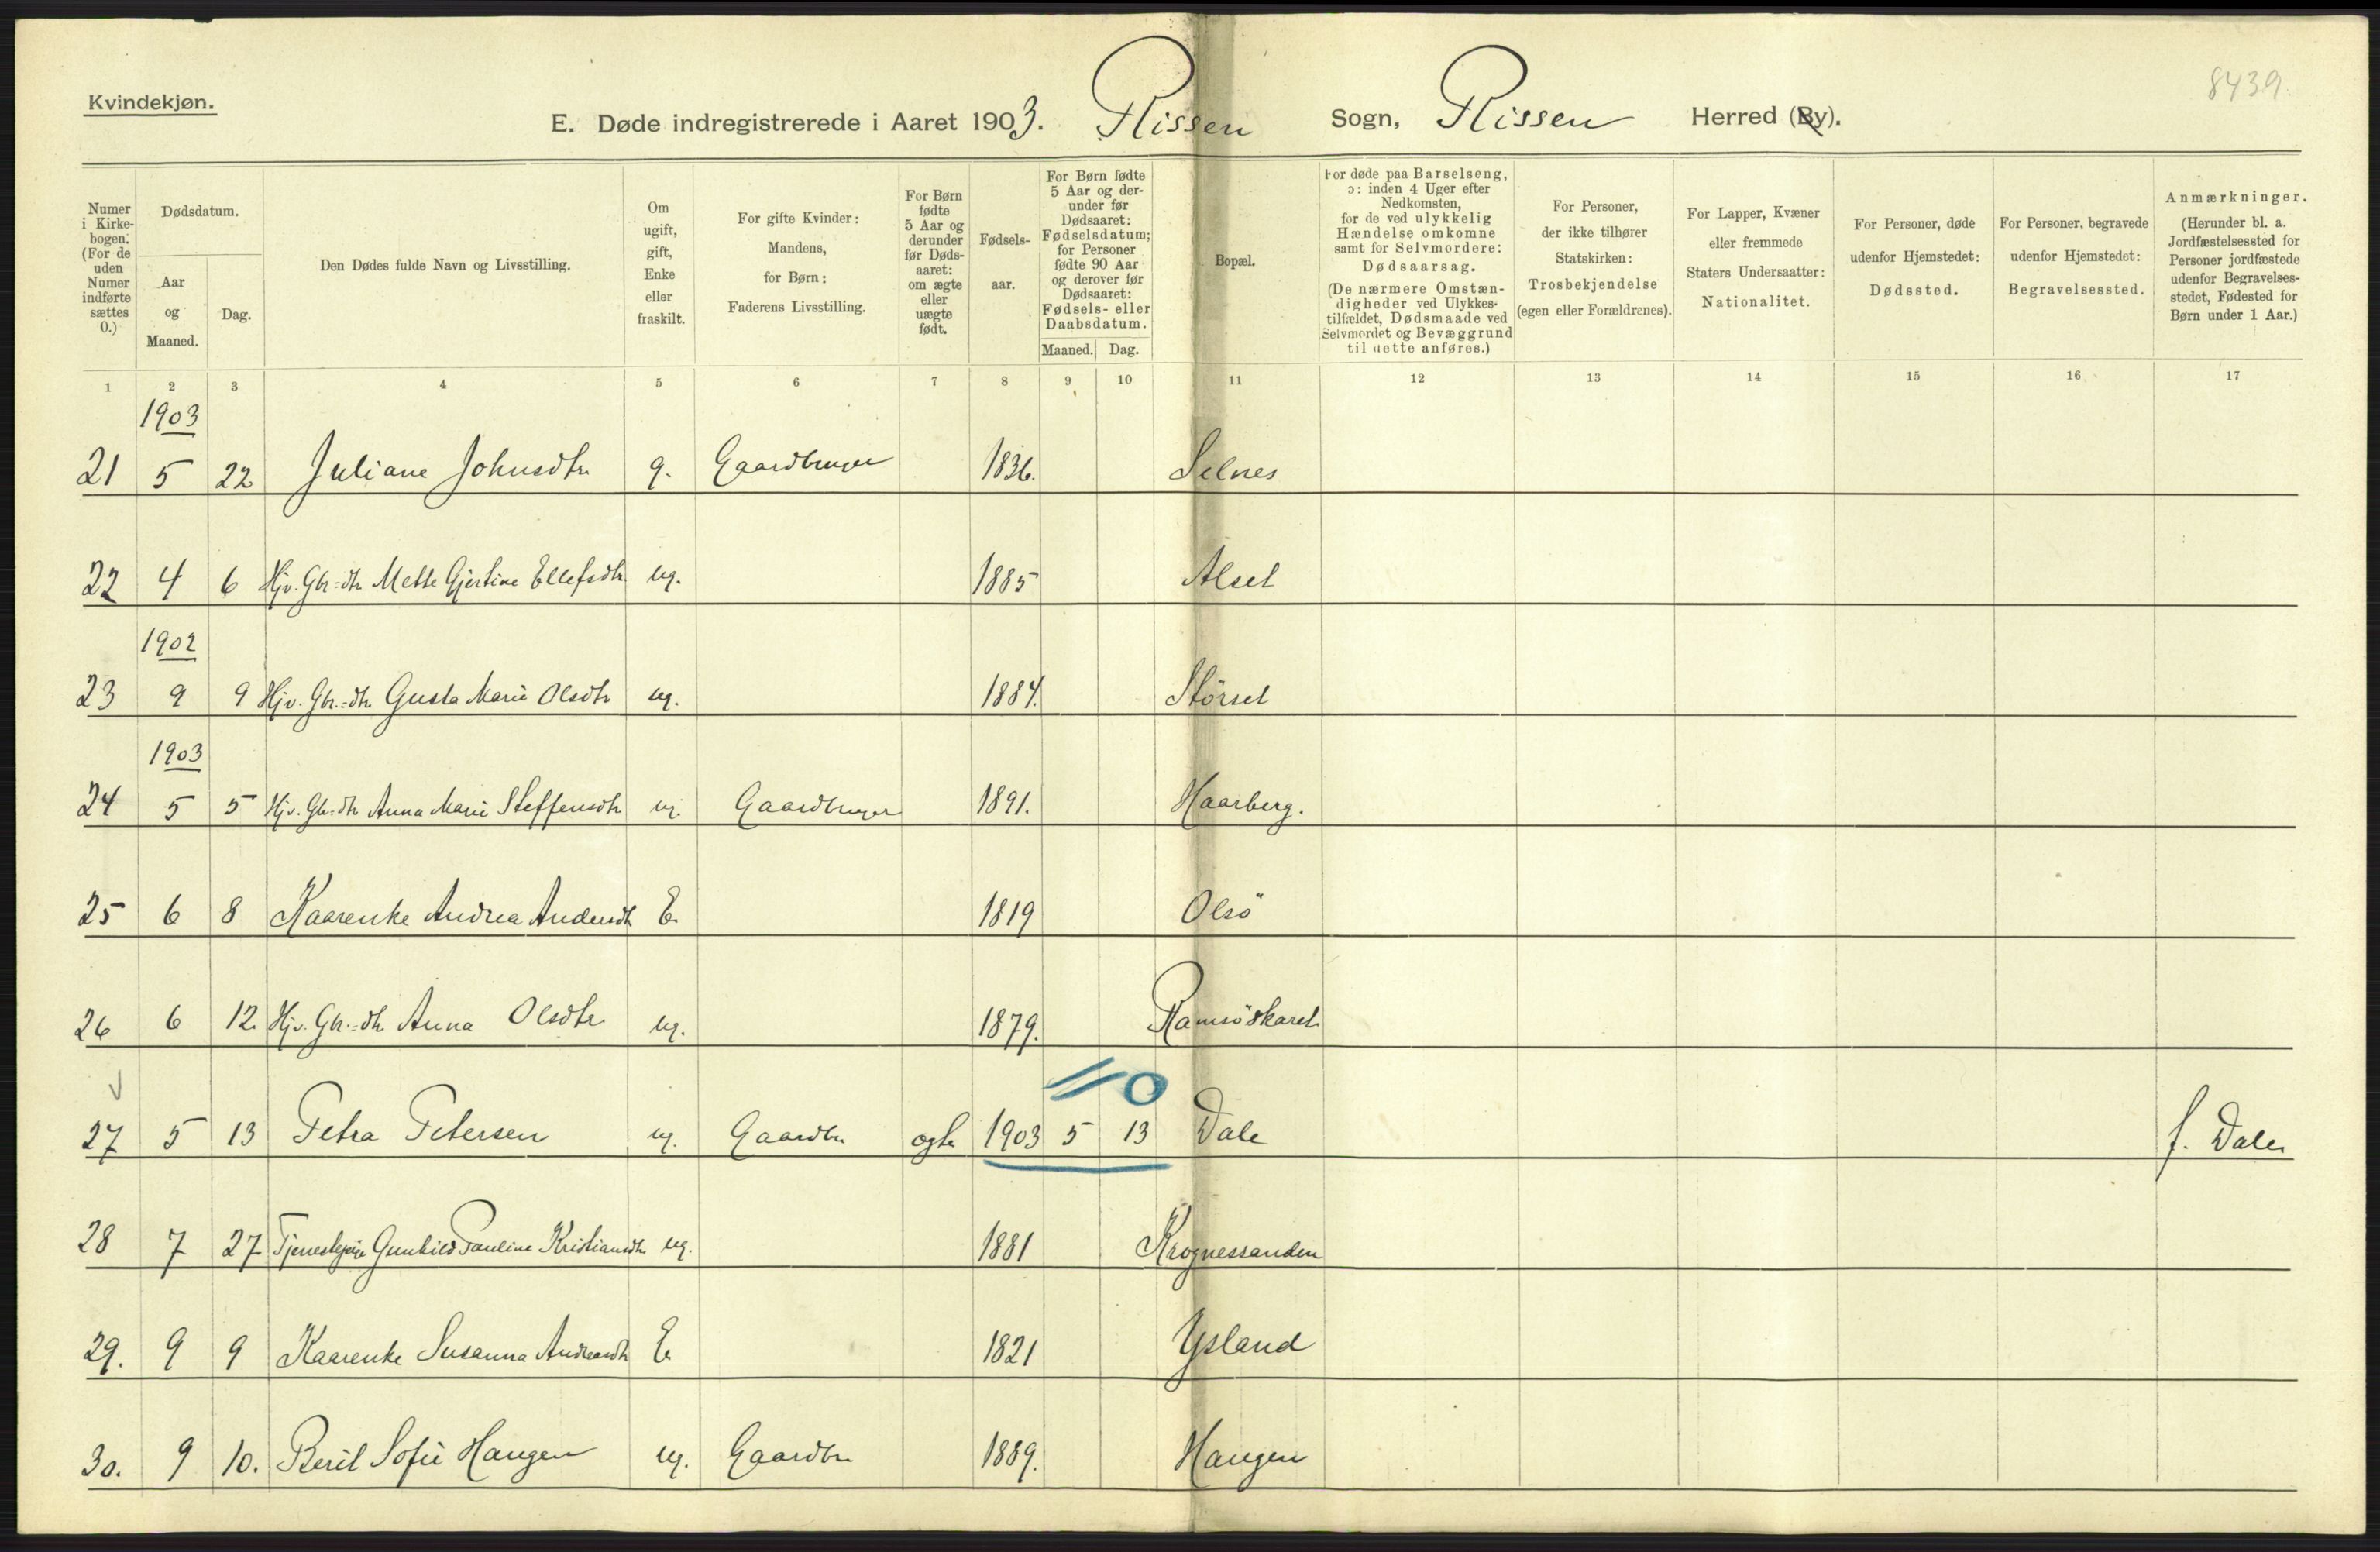 8439.
Kvindekjøn.
E. Døde indregistrerede i Aaret 1903. Rissen Sogn, Rissen Herred (By).
Numer i Kirkebogen. (For de uden Numer indførte sættes 0.)
Dødsdatum.
Aar og Maaned.
Dag.
Den Dødes fulde Navn og Livsstilling.
Om ugift, gift, Enke eller fraskilt.
For gifte Kvinder: Mandens, for Børn: Faderens Livsstilling.
For Børn fødte 5 Aar og derunder før Dødsaaret: om ægte eller uægte født.
Fødselsaar.
For Børn fødte 5 Aar og derunder før Dødsaaret: Fødselsdatum; for Personer fødte 90 Aar og derover før Dødsaaret: Fødsels- eller Daabsdatum.
Maaned. Dag.
Bopæl.
For døde paa Barselseng, ɔ: inden 4 Uger efter Nedkomsten, for de ved ulykkelig Hændelse omkomne samt for Selvmordere: Dødsaarsag. (De nærmere Omstændigheder ved Ulykkestilfældet, Dødsmaade ved Selvmordet og Bevæggrund til dette anføres.)
For Personer, der ikke tilhører Statskirken: Trosbekjendelse (egen eller Forældrenes).
For Lapper, Kvæner eller fremmede Staters Undersaatter: Nationalitet.
For Personer, døde udenfor Hjemstedet: Dødssted.
For Personer, begravede udenfor Hjemstedet: Begravelsessted.
Anmærkninger. (Herunder bl. a. Jordfæstelsessted for Personer jordfæstede udenfor Begravelsesstedet, Fødested for Børn under 1 Aar.)
1 2 3 4 5 6 7 8 9 10 11 12 13 14 15 16 17
1903
21 5 22 Juliane Johnsdtr g. Gaardbruger 1836. Selnes
22 4 6 Hjv. Gbr=dtr Mette Gjertine Ellefsdtr ug. 1885 Alset
1902
23 9 9 Hjv. Gbr.=dtr Gusta Marie Olsdtr ug. 1884. Störset
1903
24 5 5 Hjv. Gbr=dtr Anna Marie Steffensdtr ug. Gaardbruger 1891. Haarberg.
25 6 8 Kaarenke Andrea Andersdt E. 1819 Olsö
26 6 12. Hjv. Gbr.=dtr Anna Olsdtr ug. 1879. Ramsöskaret
0
27 5 13 Petra Petersen ug. Gaardbr ægte 1903 5 13 Dale f. Dale
28 7 27 Tjenestepige Gunhild Pauline Kristiansdtr ug. 1881 Krognessanden
29. 9 9 Kaarenke Susanna Andreasdt E. 1821 Ysland
30. 9 10. Beril Sofie Haugen ug. Gaardbr 1889. Haugen